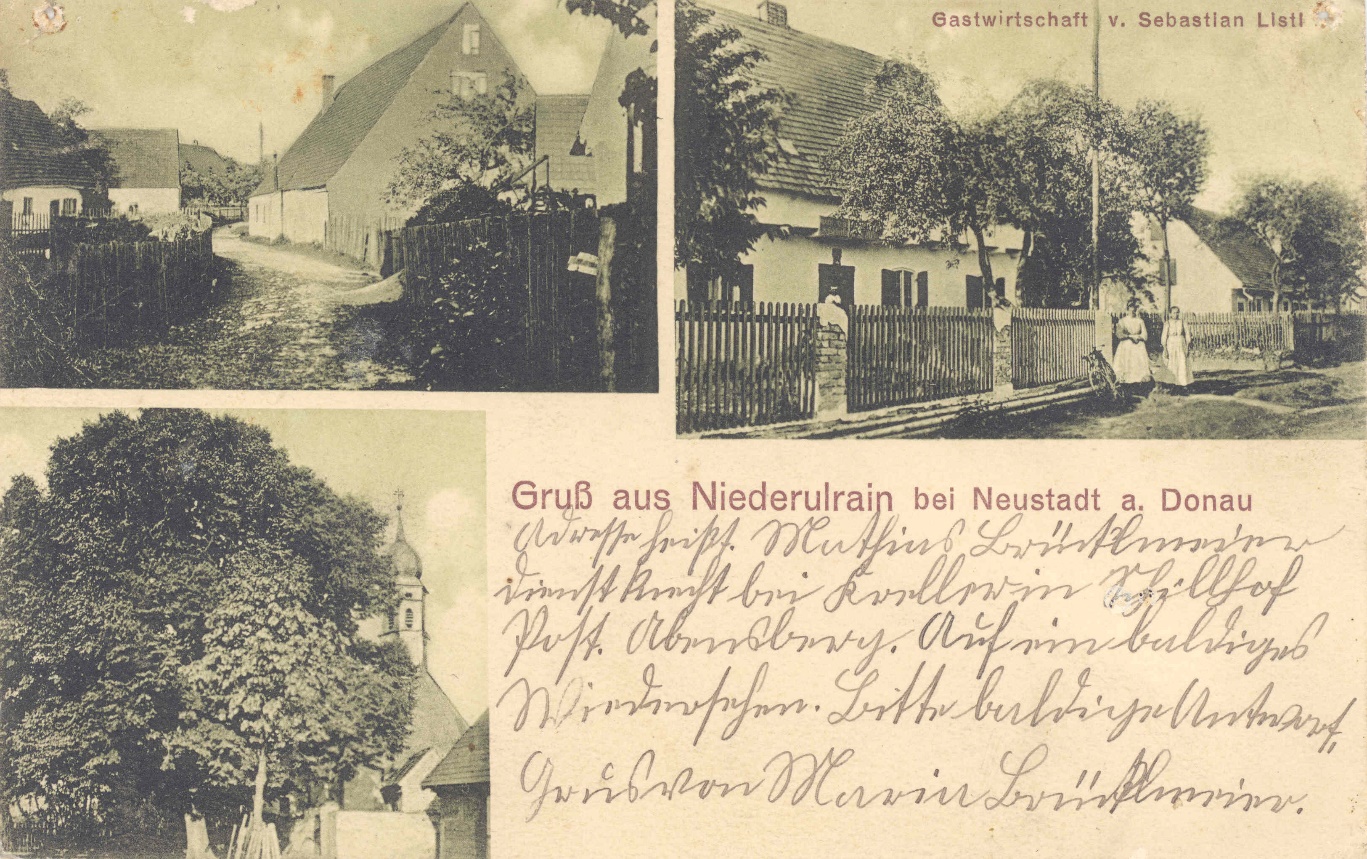 Gastwirtschaft v. Sebastian Listl
Gruß aus Niederulrain bei Neustadt a. Donau
Adresse heißt. Mathias Brücklmeier
Dienstknecht bei Kreller in Schillhof
Post. Abensberg. Auf ein baldiges
Wiedersehen. Bitte baldige Antwort,
Grus von Maria Brücklmeier.